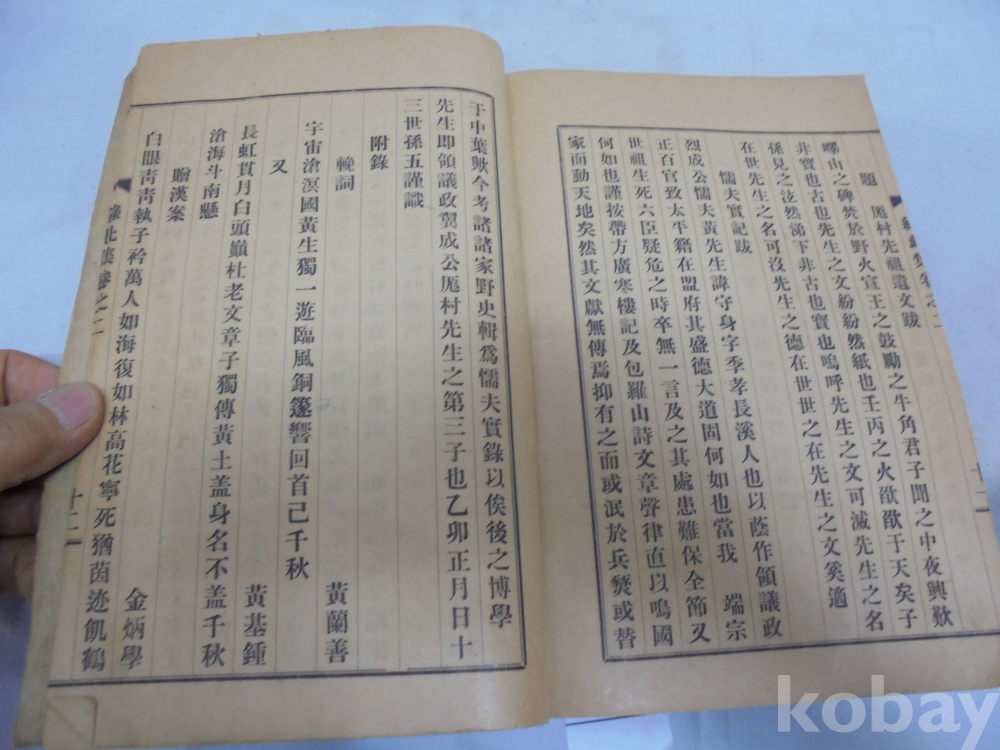 題 厖村先祖遺文跋
嶧山之碑焚於野火宣王之鼓勵之牛角君子聞之中夜興歎
非寶也古也先生之文紛紛然紙也壬丙之火欿欿于天矣子
孫見之泫然涕下非古也寶也嗚呼先生之文可滅先生之名
在世先生之名可沒先生之德在世世之在先生之文奚適
懦夫實記跋
烈成公懦夫黃先生諱守身字季孝長溪人也以蔭作領議政
正百官致太平籍在盟府其盛德大道固何如也當我 端宗
世祖生死六臣疑危之時卒無一言及之其處患難保全節又
何如也謹按帶方廣寒樓記及包羅山詩文章聲律直以鳴國
家而動天地矣然其文獻無傳焉抑有之而或泯於兵燹或替
十二
于中葉歟今考諸諸家野史輯爲懦夫實錄以俟後之博學
先生即領議政翼成公厖村先生之第三子也乙卯正月日十
三世孫五謹識
附錄
輓詞 黃蘭善
宇宙滄溟國黃生獨一遊臨風銅篴響回首已千秋
又 黃基鍾
長虹貫月白頭巓杜老文章子獨傳黃土盖身名不盖千秋
滄海斗南懸
贈漢案 金炳學
白眼靑靑執子衿萬人如海復如林高花寧死猶茵迹飢鶴
卷之二
十二
kobay